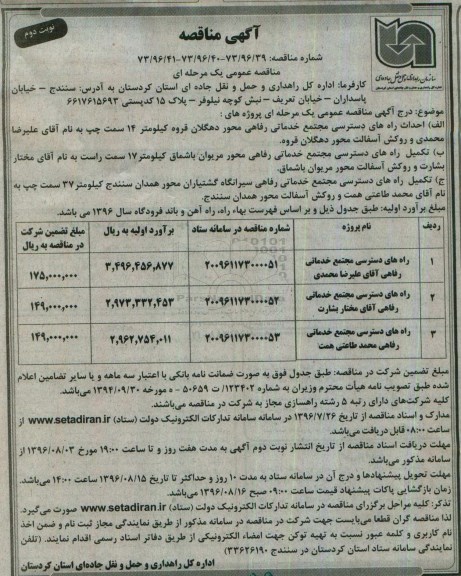 نوبت دوم
آگهی مناقصه
سازمان راهداری و حمل و نقل جاده‌ای
شماره مناقصه: ۷۳/۹۶/۳۹-۷۳/۹۶/۴۰-۷۳/۹۶/۴۱
مناقصه عمومی یک مرحله ای
کارفرما: اداره کل راهداری و حمل و نقل جاده ای استان کردستان به آدرس: سنندج – خیابان
پاسداران – خیابان تعریف – نبش کوچه نیلوفر – پلاک ۱۵ کدپستی ۶۶۱۷۶۱۵۶۹۳
موضوع: درج آگهی مناقصه عمومی یک مرحله ای پروژه های :
الف) احداث راه های دسترسی مجتمع خدماتی رفاهی محور دهگلان قروه کیلومتر ۱۴ سمت چپ به نام آقای علیرضا
محمدی و روکش آسفالت محور دهگلان قروه.
ب) تکمیل راه های دسترسی مجتمع خدماتی رفاهی محور مریوان باشماق کیلومتر۱۷ سمت راست به نام آقای مختار
بشارت و روکش آسفالت محور مریوان باشماق.
ج) تکمیل راه های دسترسی مجتمع خدماتی رفاهی سیرانگاه گشتیاران محور همدان سنندج کیلومتر۳۷ سمت چپ به
نام آقای محمد طاعتی همت و روکش آسفالت محور همدان سنندج.
مبلغ برآورد اولیه: طبق جدول ذیل و بر اساس فهرست بهاء راه، راه آهن و باند فرودگاه سال ۱۳۹۶ می باشد.
ردیف نام پروژه شماره مناقصه در سامانه ستاد برآورد اولیه به ریال مبلغ تضمین شرکت در مناقصه به ریال
۱ راه های دسترسی مجتمع خدماتی رفاهی آقای علیرضا محمدی ۲۰۰۹۶۱۱۷۳۰۰۰۰۵۱ ۳,۴۹۶,۴۵۶,۸۷۷ ۱۷۵,۰۰۰,۰۰۰
۲ راه های دسترسی مجتمع خدماتی رفاهی آقای مختار بشارت ۲۰۰۹۶۱۱۷۳۰۰۰۰۵۲ ۲,۹۷۳,۳۳۲,۴۵۳ ۱۴۹,۰۰۰,۰۰۰
۳ راه های دسترسی مجتمع خدماتی رفاهی محمد طاعتی همت ۲۰۰۹۶۱۱۷۳۰۰۰۰۵۳ ۲,۹۶۲,۷۵۴,۰۱۱ ۱۴۹,۰۰۰,۰۰۰
مبلغ تضمین شرکت در مناقصه: طبق جدول فوق به صورت ضمانت نامه بانکی با اعتبار سه ماهه و یا سایر تضامین اعلام
شده طبق تصویب نامه هیأت محترم وزیران به شماره ۱۲۳۴۰۲/ ت ۵۰۶۵۹ - ه مورخه ۱۳۹۴/۰۹/۳۰.
کلیه شرکت‌های دارای رتبه ۵ رشته راهسازی مجاز به شرکت در مناقصه می‌باشند.
مدارک و اسناد مناقصه از تاریخ ۱۳۹۶/۷/۲۶ در سامانه سامانه تدارکات الکترونیک دولت (ستاد) www.setadiran.ir از
ساعت ۰۸:۰۰ قابل دریافت می‌باشد.
مهلت دریافت اسناد مناقصه از تاریخ انتشار نوبت دوم آگهی به مدت هفت روز و تا ساعت ۱۹:۰۰ مورخ ۱۳۹۶/۰۸/۰۳ از
سامانه مذکور می‌باشد.
مهلت تحویل پیشنهادها و درج آن در سامانه ستاد به مدت ۱۰ روز و حداکثر تا تاریخ ۱۳۹۶/۰۸/۱۵ ساعت ۱۴:۰۰ می‌باشد.
زمان بازگشایی پاکات پیشنهاد قیمت ساعت ۰۹:۰۰ صبح ۱۳۹۶/۰۸/۱۶ می‌باشد.
تذکر: کلیه مراحل برگزاری مناقصه در سامانه تدارکات الکترونیک دولت (ستاد) www.setadiran.ir صورت می‌گیرد.
لذا مناقصه گران قطعا می‌بایست جهت شرکت در مناقصه در سامانه مذکور از طریق نمایندگی مجاز ثبت نام و ضمن اخذ
نام کاربری و کلمه عبور نسبت به تهیه توکن جهت امضاء الکترونیکی از طریق دفاتر اسناد رسمی اقدام نمایند. (تلفن
نمایندگی سامانه ستاد استان کردستان در سنندج ۳۳۶۲۶۱۹۰)
اداره کل راهداری و حمل و نقل جاده‌ای استان کردستان